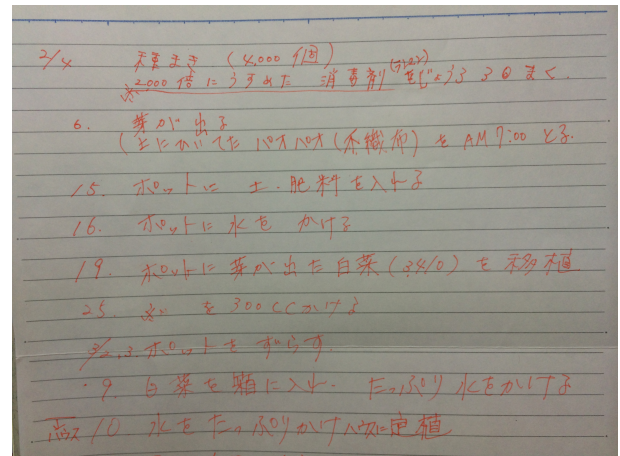 2/4 種まき (4,000個)
※2000倍にうすめた 消毒剤 じょうろ 3回 まく.
6. 芽が出る
(上にひいてた パオパオ(不織布)を AM 7:00 とる.
15. ポットに 土・肥料を入れる
16. ポットに水を かける
19. ポットに芽が出た白菜(3410)を移植
25. ※を300CCかける
3/2,3. ポットを ずらす.
・9. 白菜を箱に入れ. たっぷり水をかける
10 水をたっぷりかけハウスに定植